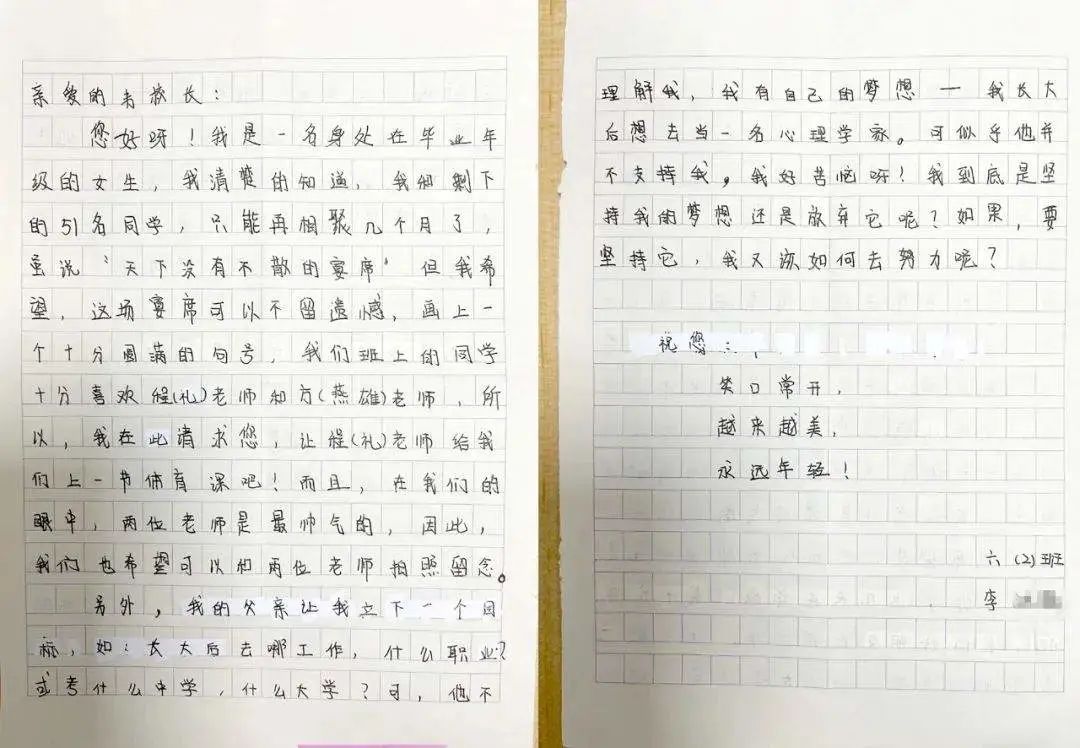 亲爱的 校长：
您好呀！我是一名身处在毕业年
级的女生，我清楚的知道，我和剩下
的51名同学，只能再相聚几个月了，
虽说“天下没有不散的宴席”但我希
望，这场宴席可以不留遗憾，画上一
个十分圆满的句号，我们班上的同学
十分喜欢程(礼)老师和方(燕雄)老师，所
以，我在此请求您，让程(礼)老师给我
们上一节体育课吧！而且，在我们的
眼中，两位老师是最帅气的，因此，
我们也希望可以和两位老师拍照留念。
另外，我的父亲让我立下一个目
标，如：长大后去哪工作，什么职业？
或考什么中学，什么大学？可，他不
理解我，我有自己的梦想一我长大
后想去当一名心理学家。可似乎他并
不支持我。我好苦恼呀！我到底是坚
持我的梦想还是放弃它呢？如果，要
坚持它，我又该如何去努力呢？
祝您
笑口常开，
越来越美，
永远年轻！
六(2)班
李